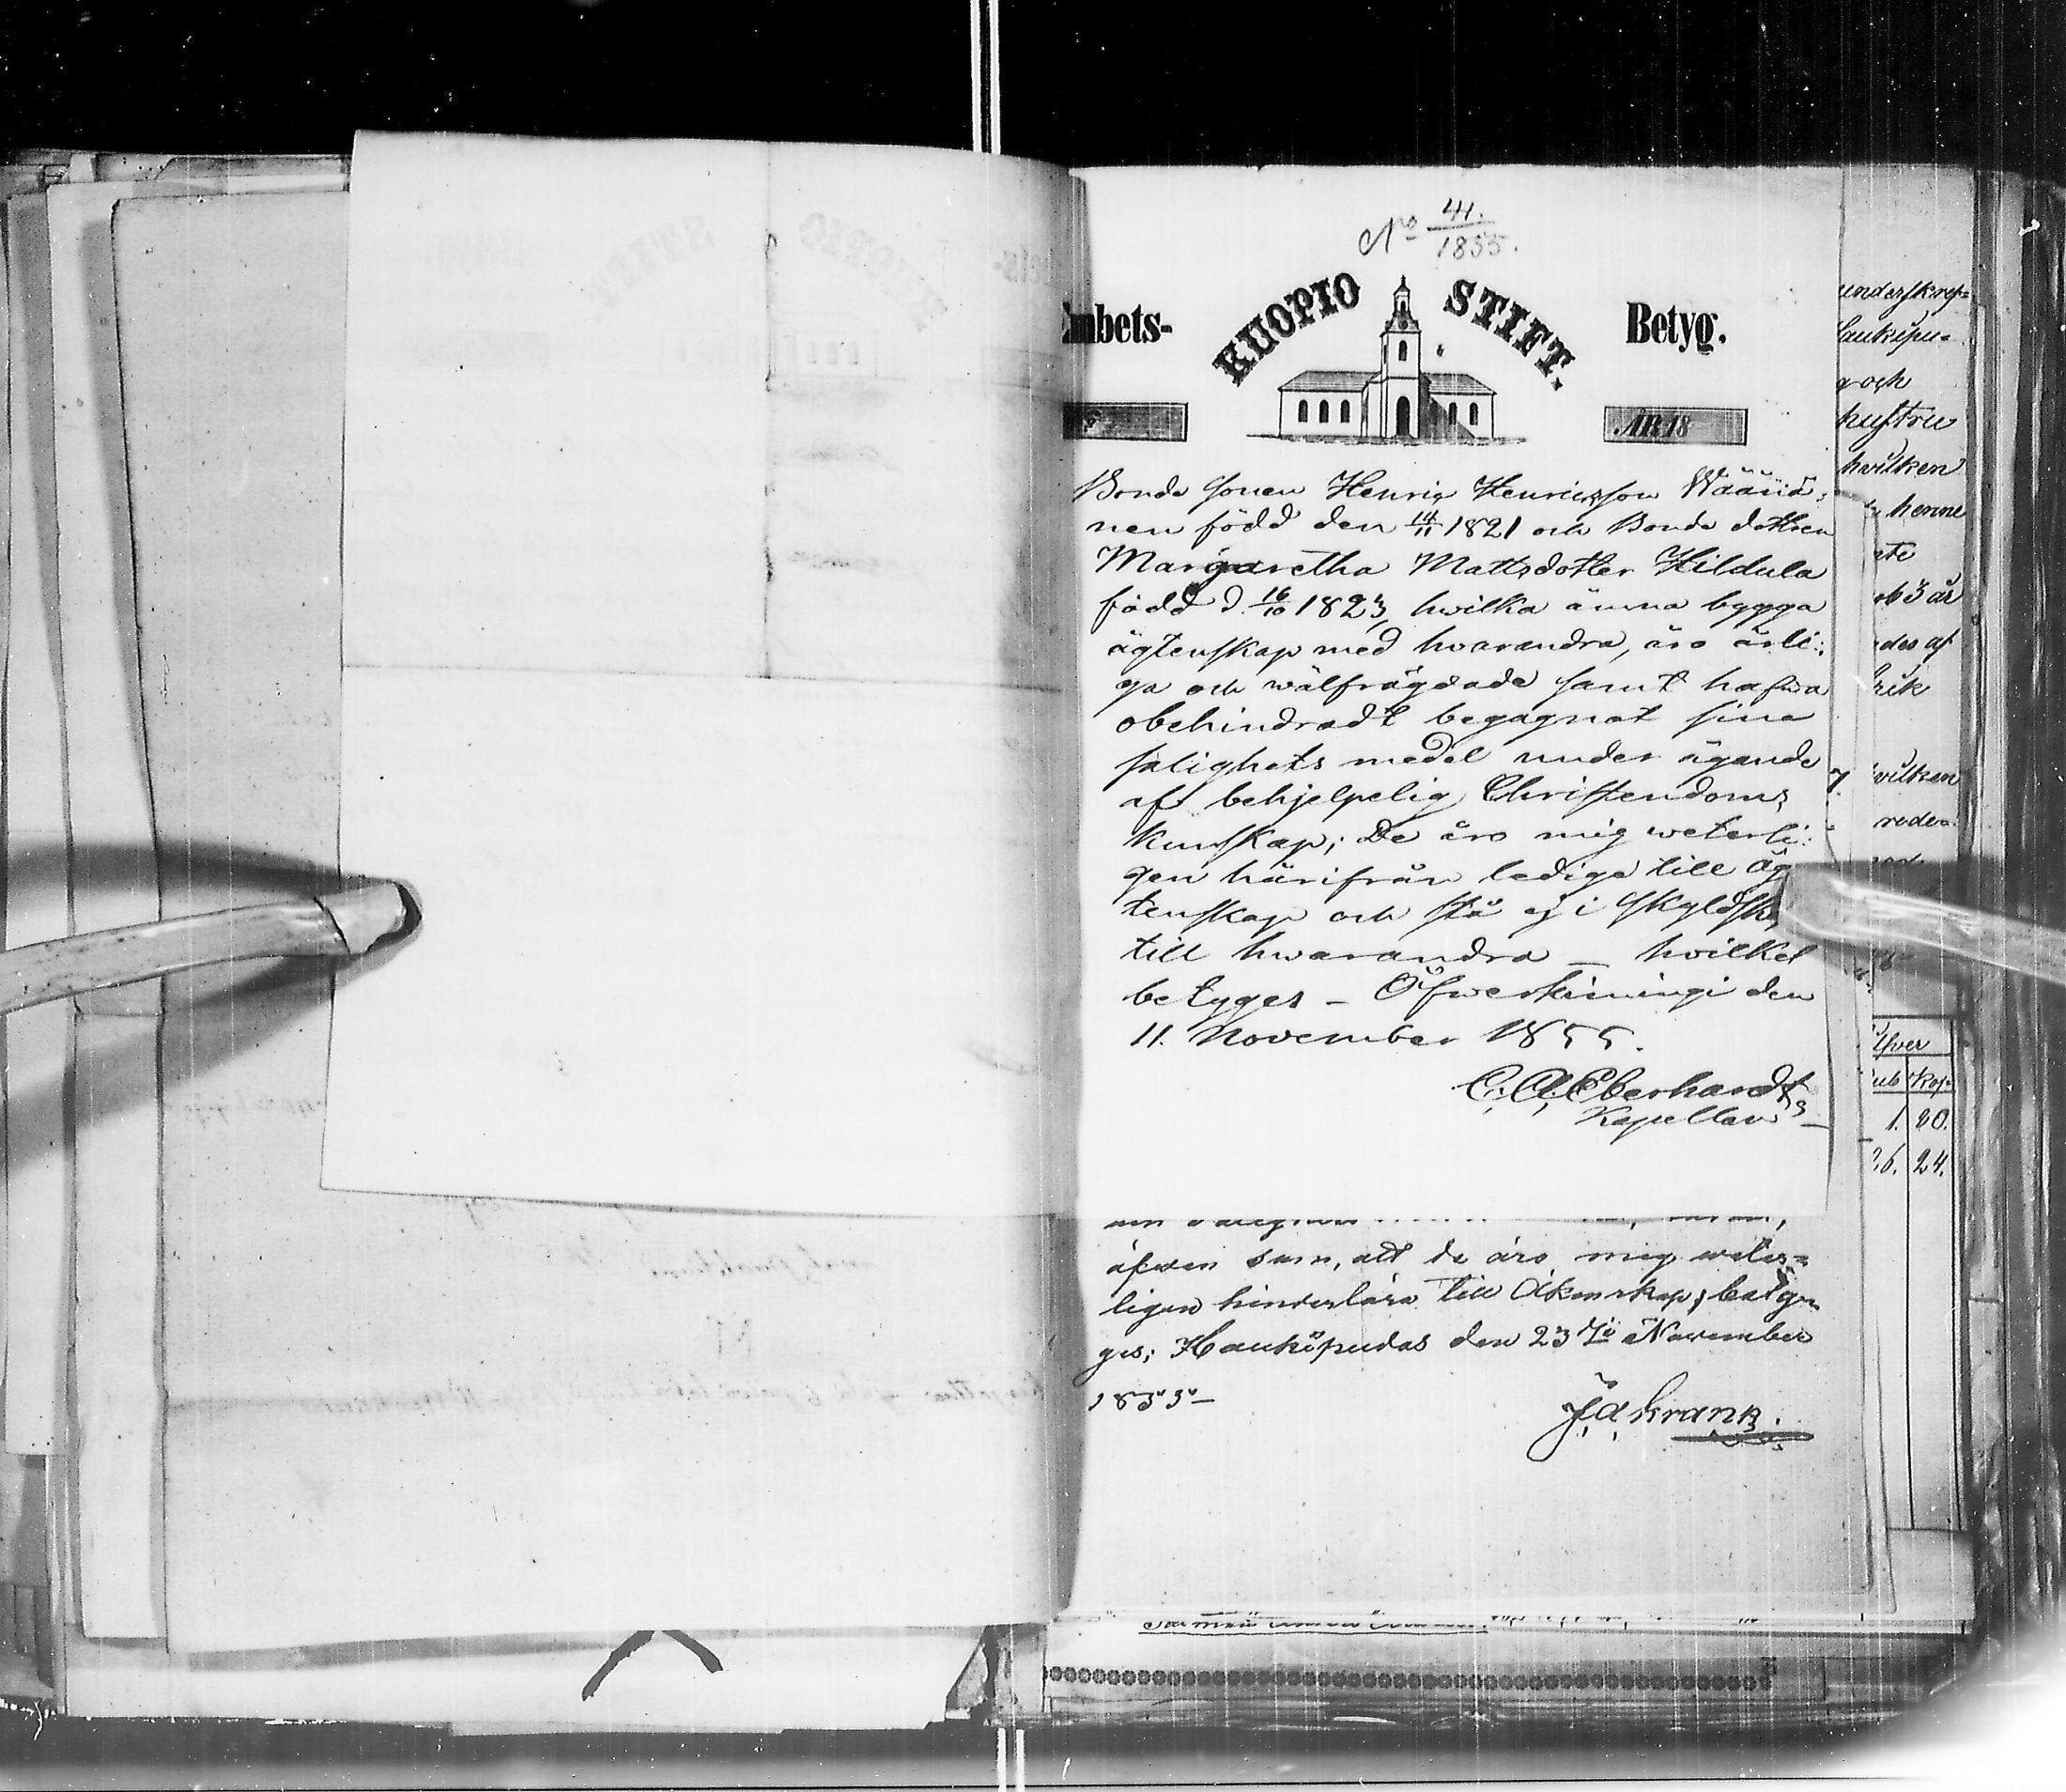 No 41.
1855.
Embets- KUOPIO STIFT. Betyg.
ÅR 18
Bonde sonen Henric Henricsson Wäänä-
nen född den 14/11 1821 och Bonde dottren
Margaretha Mattsdotter Hildula
född d. 16/10 1823, hwilka ämna bygga
ägtenskap med hwarandra, äro ärli-
ga och wälfrägdade samt hafwa
obehindradt begagnat sina
salighets medel under ägande
af behjelpelig Christendoms
kunskap; De äro mig weterli-
gen härifrån lediga till äg
tenskap och stå ej i skyldsk
till hwarandra — hvilket
betyges — Öfwerkiiningi den
11. November 1855.
C. A. Eberhardt
Kapellan
äfwen som, att de äro mig weter-
ligen hinderlösa till Äktenskap; betyg
ges; Haukipudas den 23 November
1855 —
J. A. Krank.
underskref-
Haukipu-
g och
hustru
hvilken
henne
te
3 år
des af
rik
hvilken
reder
Silfver
Rub Kop.
1. 20.
26. 24.